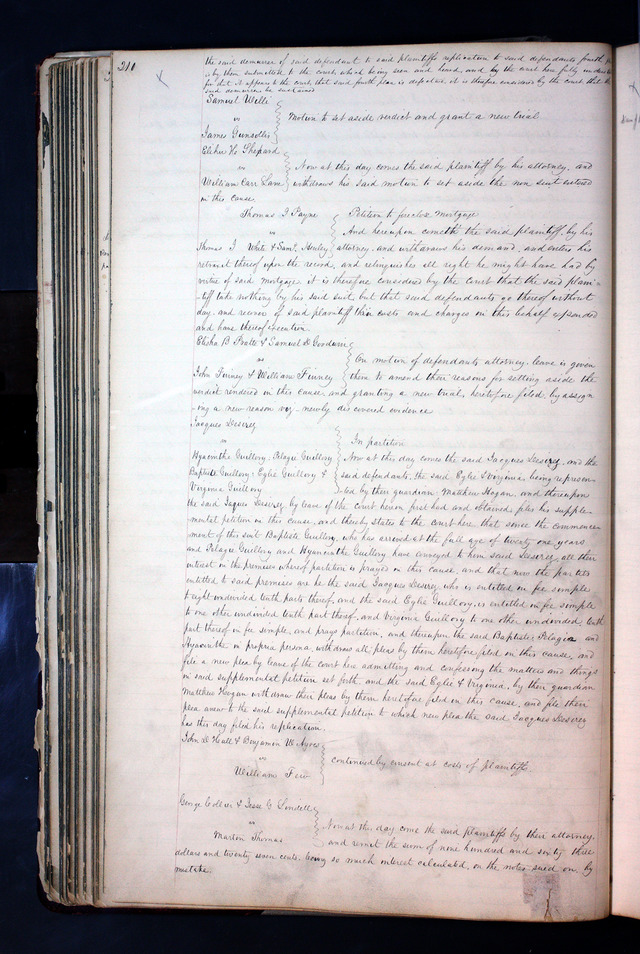 210
the said demurrer of said defendant to said plaintiffs replication to said defendants fourth
is by them submitted to the court, which being seen and heard, and by the court here fully
it appears to the court that said fourth plea is defective, it is therefore considered by the court that the
said demurrer be sustained
Samuel Wells
vs
James Gunsollis
Motion to set aside verdict and grant a new trial
Elihu H. Shepard
vs
William Carr Lane
Now at this day comes the said plaintiff by his attorney, and
withdraws his said motion to set aside the non suit entered
in this cause.
Thomas J Payne
vs
Thomas J White & Saml Henley
Petition to foreclose mortgage
And hereupon cometh the said plaintiff, by his
attorney, and withdraws his demand, and enters his
retraxit thereof upon the record, and relinquishes all right he might have had by
virtue of said mortgage. it is therefore considered by the court that the said plain-
-tiff take nothing by his said suit, but that said defendants go thereof without
day, and recover of said plaintiff their costs and charges in this behalf expended
and have thereof execution
Elisha B Pratte & Samuel D Goodwin
vs
John Finney & William Finney
On motion of defendants attorney leave is given
them to amend their reasons for setting aside the
verdict rendered in this cause, and granting a new trial, heretofore filed, by assign
-ing a new reason viz - newly discovered evidence
Jacques Desirey
vs
Hyacinthe Guillory, Pelagie Guillory
Baptiste Guillory, Eglie Guillory &
Virginia Guillory
In partition
Now at this day comes the said Jacques Desirey, and the
said defendants, the said Eglie & Virginia being represen-
-ted by their guardian Matthew Hogan, and thereupon
the said Jaques Desirey, by leave of the court herein first had and obtained files his supple-
mental petition in this cause, and thereby states to the court here that since the commence-
ment of this suit Baptiste Guillory, who has arrived at the full age of twenty one years
and Pelagie Guillory and Hyacinthe Guillory have conveyed to him said Desirey, all their
interest in the premises whereof partition is prayed in this cause, and that now the parties
entitled to said premises are he the said Jacques Desirey, who is entitled in fee simple
to eight undivided tenth parts thereof, and the said Eglie Guillory, is entitled in fee simple
to one other undivided tenth part thereof, and Virginia Guillory to one other undivided tenth
part thereof in fee simple, and prays partition, and thereupon the said Baptiste, Pelagia and
Hyacinthe in propria persona, withdraw all pleas by them heretofore filed in this cause, and
file a new plea by leave of the court here admitting and confessing the matters and things
in said supplemental petition set forth, and the said Eglie & Virginia, by their guardian
Matthew Hogan withdraw their pleas by them heretofore filed in this cause, and file their
plea anew to the said supplemental petition to which new plea the said Jacques Desirey
has this day filed his replication.
John D Heath & Benjamin W Ayres
vs
William Fern
continued by consent at costs of plaintiffs
George Collier & Jesse G Lindell
vs
Marton Thomas
Now at this day come the said plaintiffs by their attorney,
and remit the sum of nine hundred and sixty three
dollars and twenty seven cents, being so much interest calculated, on the notes sued on, by
mistake.